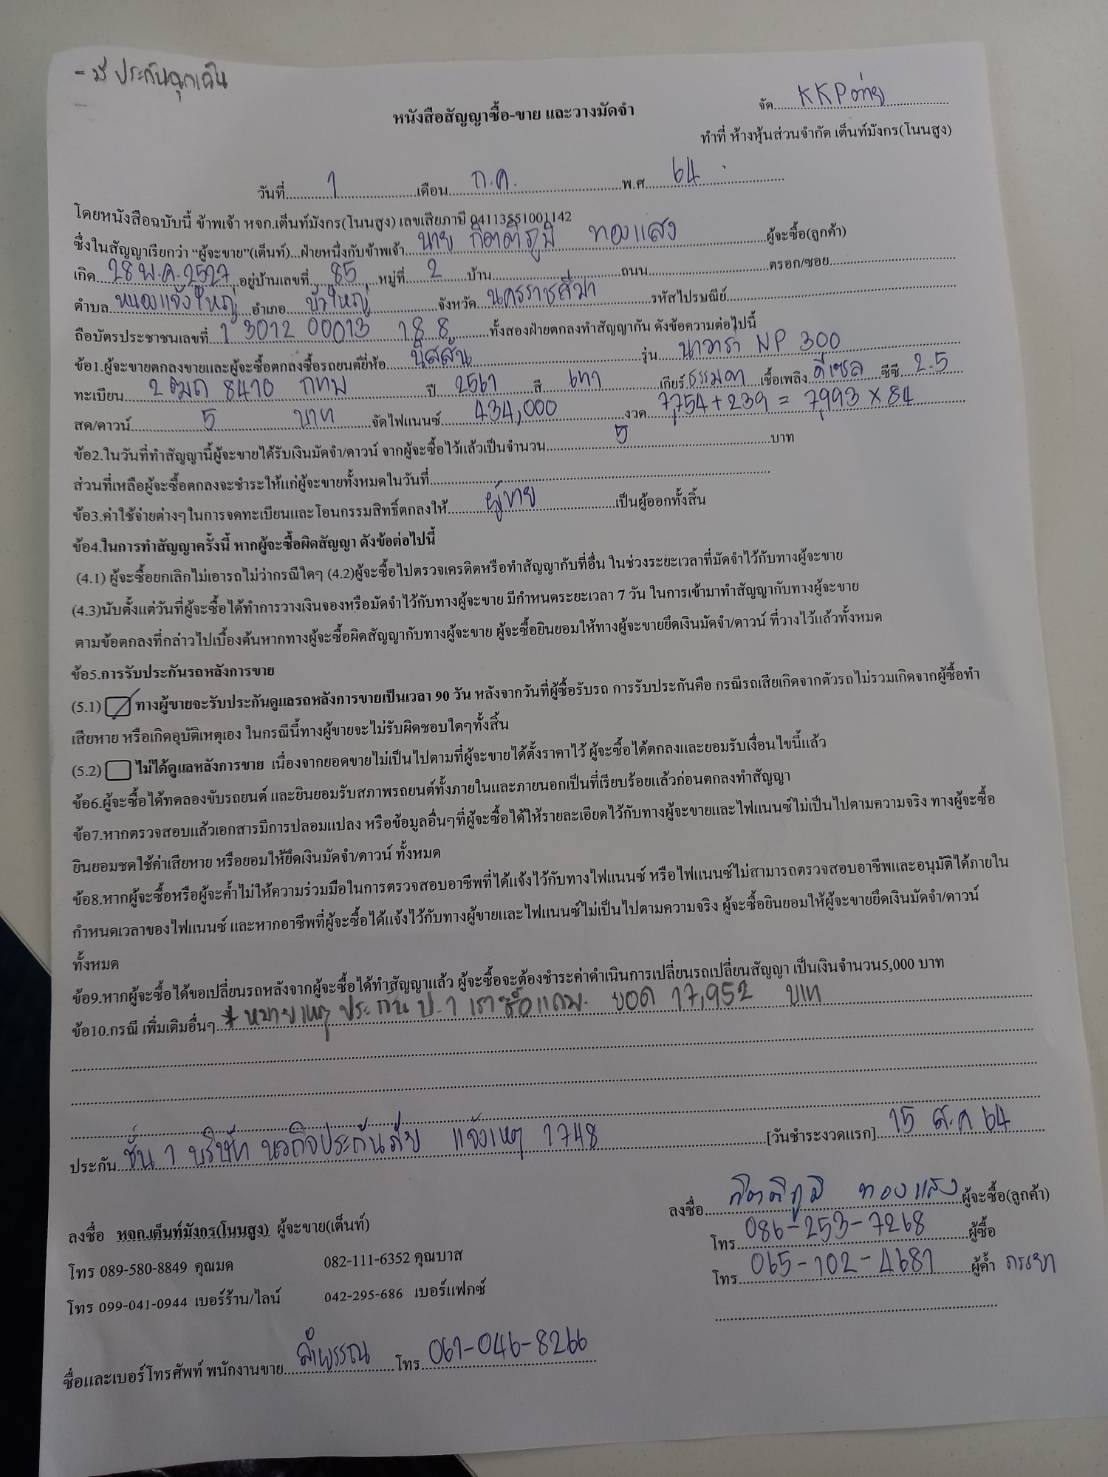 - มี ประกันฉุกเฉิน
จัด KKP ต่าย
หนังสือสัญญาซื้อ-ขาย และวางมัดจำ
ทำที่ ห้างหุ้นส่วนจำกัด เต็นท์มังกร(โนนสูง)
วันที่ 1 เดือน ก.ค. พ.ศ. 64
โดยหนังสือฉบับนี้ ข้าพเจ้า หจก.เต็นท์มังกร(โนนสูง) เลขเสียภาษี 04113551001142
ซึ่งในสัญญาเรียกว่า "ผู้จะขาย"(เต็นท์)...ฝ่ายหนึ่งกับข้าพเจ้า นาย กิตติภูมิ ทองแสง ผู้จะซื้อ(ลูกค้า)
เกิด 28 พ.ค. 2527 อยู่บ้านเลขที่ 85 หมู่ที่ 2 บ้าน ถนน ตรอก/ซอย
ตำบล หนองแจ้งใหญ่ อำเภอ บัวใหญ่ จังหวัด นครราชสีมา รหัสไปรษณีย์
ถือบัตรประชาชนเลขที่ 1 3012 00013 18.8 ทั้งสองฝ่ายตกลงทำสัญญากัน ดังข้อความต่อไปนี้
ข้อ1.ผู้จะขายตกลงขายและผู้จะซื้อตกลงซื้อรถยนต์ยี่ห้อ นิสสัน รุ่น นาวาร่า NP 300
ทะเบียน 2 ฒถ 8470 กทม ปี 2561 สี เทา เกียร์ ธรรมดา เชื้อเพลิง ดีเซล ซีซี 2.5
สด/ดาวน์ 5 บาท จัดไฟแนนซ์ 434,000 งวด 7,754+239 = 7,993 x 84
ข้อ2.ในวันที่ทำสัญญานี้ผู้จะขายได้รับเงินมัดจำ/ดาวน์ จากผู้จะซื้อไว้แล้วเป็นจำนวน 5 บาท
ส่วนที่เหลือผู้จะซื้อตกลงจะชำระให้แก่ผู้จะขายทั้งหมดในวันที่
ข้อ3.ค่าใช้จ่ายต่างๆในการจดทะเบียนและโอนกรรมสิทธิ์ตกลงให้ ผู้ขาย เป็นผู้ออกทั้งสิ้น
ข้อ4.ในการทำสัญญาครั้งนี้ หากผู้จะซื้อผิดสัญญา ดังข้อต่อไปนี้
(4.1) ผู้จะซื้อยกเลิกไม่เอารถไม่ว่ากรณีใดๆ (4.2)ผู้จะซื้อไปตรวจเครดิตหรือทำสัญญากับที่อื่น ในช่วงระยะเวลาที่มัดจำไว้กับทางผู้จะขาย
(4.3)นับตั้งแต่วันที่ผู้จะซื้อได้ทำการวางเงินจองหรือมัดจำไว้กับทางผู้จะขาย มีกำหนดระยะเวลา 7 วัน ในการเข้ามาทำสัญญากับทางผู้จะขาย
ตามข้อตกลงที่กล่าวไปเบื้องต้นหากทางผู้จะซื้อผิดสัญญากับทางผู้จะขาย ผู้จะซื้อยินยอมให้ทางผู้จะขายยึดเงินมัดจำ/ดาวน์ ที่วางไว้แล้วทั้งหมด
ข้อ5.การรับประกันรถหลังการขาย
(5.1) ทางผู้ขายจะรับประกันดูแลรถหลังการขายเป็นเวลา 90 วัน หลังจากวันที่ผู้ซื้อรับรถ การรับประกันคือ กรณีรถเสียเกิดจากตัวรถไม่รวมเกิดจากผู้ซื้อทำ
เสียหาย หรือเกิดอุบัติเหตุเอง ในกรณีนี้ทางผู้ขายจะไม่รับผิดชอบใดๆทั้งสิ้น
(5.2) ไม่ได้ดูแลหลังการขาย เนื่องจากยอดขายไม่เป็นไปตามที่ผู้จะขายได้ตั้งราคาไว้ ผู้จะซื้อได้ตกลงและยอมรับเงื่อนไขนี้แล้ว
ข้อ6.ผู้จะซื้อได้ทดลองขับรถยนต์ และยินยอมรับสภาพรถยนต์ทั้งภายในและภายนอกเป็นที่เรียบร้อยแล้วก่อนตกลงทำสัญญา
ข้อ7.หากตรวจสอบแล้วเอกสารมีการปลอมแปลง หรือข้อมูลอื่นๆที่ผู้จะซื้อได้ให้รายละเอียดไว้กับทางผู้จะขายและไฟแนนซ์ไม่เป็นไปตามความจริง ทางผู้จะซื้อ
ยินยอมชดใช้ค่าเสียหาย หรือยอมให้ยึดเงินมัดจำ/ดาวน์ ทั้งหมด
ข้อ8.หากผู้จะซื้อหรือผู้จะค้ำไม่ให้ความร่วมมือในการตรวจสอบอาชีพที่ได้แจ้งไว้กับทางไฟแนนซ์ หรือไฟแนนซ์ไม่สามารถตรวจสอบอาชีพและอนุมัติได้ภายใน
กำหนดเวลาของไฟแนนซ์ และหากอาชีพที่ผู้จะซื้อได้แจ้งไว้กับทางผู้ขายและไฟแนนซ์ไม่เป็นไปตามความจริง ผู้จะซื้อยินยอมให้ผู้จะขายยึดเงินมัดจำ/ดาวน์
ทั้งหมด
ข้อ9.หากผู้จะซื้อได้ขอเปลี่ยนรถหลังจากผู้จะซื้อได้ทำสัญญาแล้ว ผู้จะซื้อจะต้องชำระค่าดำเนินการเปลี่ยนรถเปลี่ยนสัญญา เป็นเงินจำนวน5,000 บาท
ข้อ10.กรณี เพิ่มเติมอื่นๆ * หมายเหตุ ประกัน ป.1 เราซื้อแถม. ยอด 17,952 บาท
ประกัน ชั้น 1 บริษัท นวกิจประกันภัย แจ้งเหตุ 1748 [วันชำระงวดแรก] 15 ส.ค 64
ลงชื่อ กิตติภูมิ ทองแสง ผู้จะซื้อ(ลูกค้า)
ลงชื่อ หจก.เต็นท์มังกร(โนนสูง) ผู้จะขาย(เต็นท์)
โทร 086-253-7268 ผู้ซื้อ
โทร 089-580-8849 คุณมด 082-111-6352 คุณบาส
โทร 065-102-4681 ผู้ค้ำ ภรรยา
โทร 099-041-0944 เบอร์ร้าน/ไลน์ 042-295-686 เบอร์แฟกซ์
ชื่อและเบอร์โทรศัพท์ พนักงานขาย ลำพรรณ โทร 061-046-8266